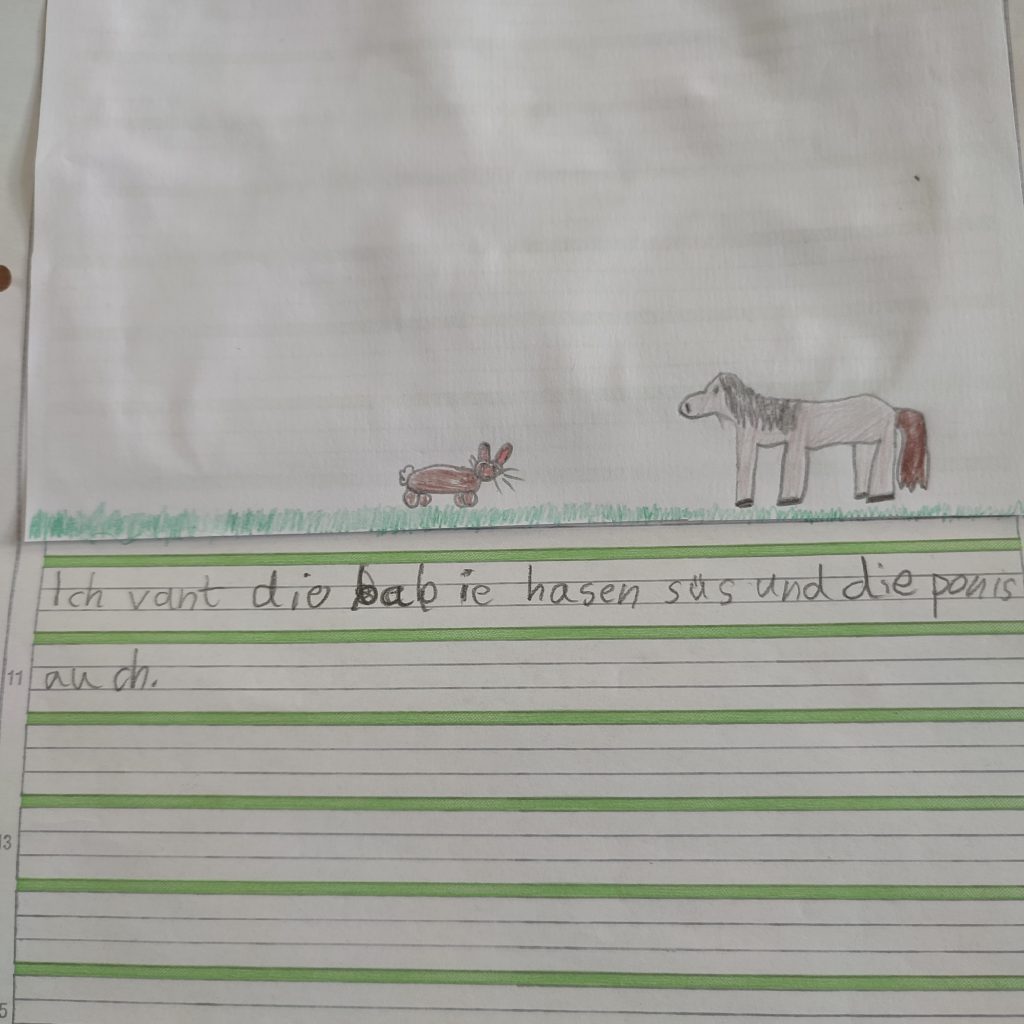 Ich vant die babie hasen süs und die ponis
11 auch.
13
5